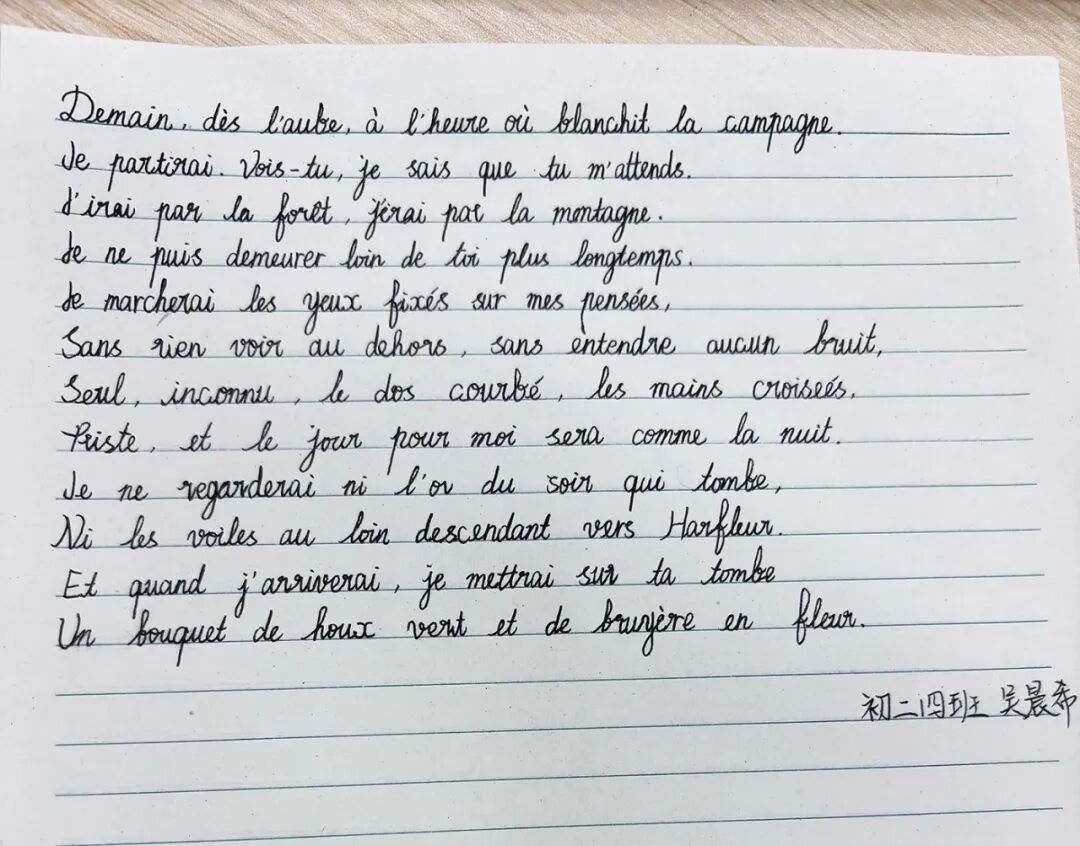 Demain, dès l'aube, à l'heure où blanchit la campagne.
Je partirai. Vois-tu, je sais que tu m'attends.
J'irai par la forêt, j'irai par la montagne.
Je ne puis demeurer loin de toi plus longtemps.
Je marcherai les yeux fixés sur mes pensées,
Sans rien voir au dehors, sans entendre aucun bruit,
Seul, inconnu, le dos courbé, les mains croiseés,
Triste, et le jour pour moi sera comme la nuit.
Je ne regarderai ni l'or du soir qui tombe,
Ni les voiles au loin descendant vers Harfleur.
Et quand j'arriverai, je mettrai sur ta tombe
Un bouquet de houx vert et de bruyère en fleur.
初二四班 吴晨希